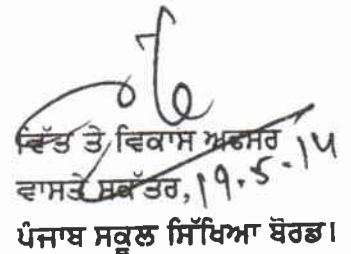 ਵਿੱਤ ਤੇ ਵਿਕਾਸ ਅਫਸਰ
ਵਾਸਤੇ ਸਕੱਤਰ, 19.5.14
ਪੰਜਾਬ ਸਕੂਲ ਸਿੱਖਿਆ ਬੋਰਡ।